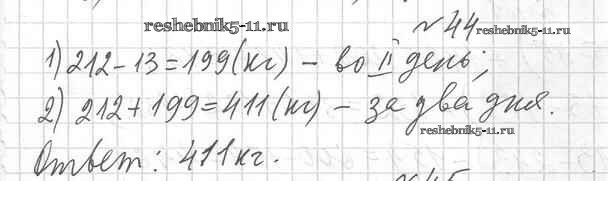 reshebnik5-11.ru
№44
reshebnik5-11.ru
1) 212-13=199(кг) - во II день;
2) 212+199=411(кг) - за два дня.
reshebnik5-11.ru
Ответ: 411кг.
№45